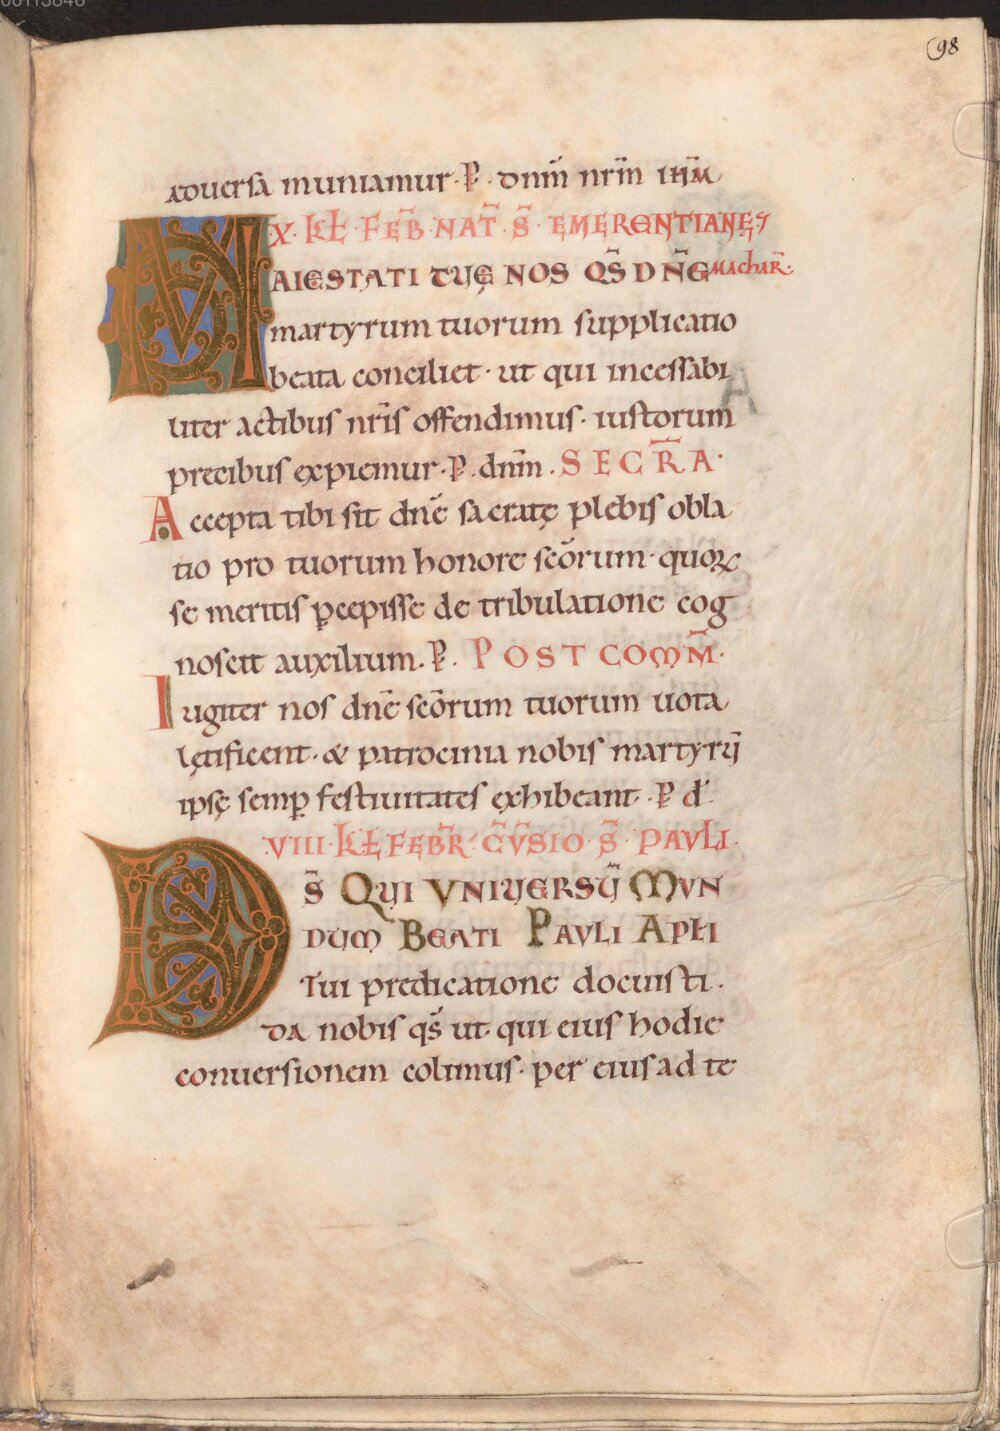 98
aduersa muniamur· P̄· dnm̄ nrm̄ ihm̄
X· KŁ· FEB̄· NAT̄· S̄· EMERENTIANĘ· 7
MAIESTATI TUĘ NOS QS̄ DÑE machar̄·
martyrum tuorum supplicatio
beata conciliet· ut qui incessabi
liter actibus nrīs offendimus· iustorum
precibus expiemur· P̄· dnm̄· SECR̄A·
Accepta tibi sit dnē sacratę plebis obla
tio pro tuorum honore scōrum· quoꝝ
se meritis ꝑcepisse de tribulatione cog
noscit auxilium· P̄· POST COMM̄·
Iugiter nos dnē scōrum tuorum uota
lętificent· & patrocinia nobis martyrū
ipsę semꝑ festiuitates exhibeant· P̄ d̄·
VIII· KŁ FEBR̄· C̄V̄SIO· S̄· PAVLI·
DS̄ QUI VNIUERSŪ MVN
DUM BEATI PAVLI APŁI
Tui predicatione docuisti·
da nobis qs̄ ut qui eius hodie
conuersionem colimus· per eius ad te